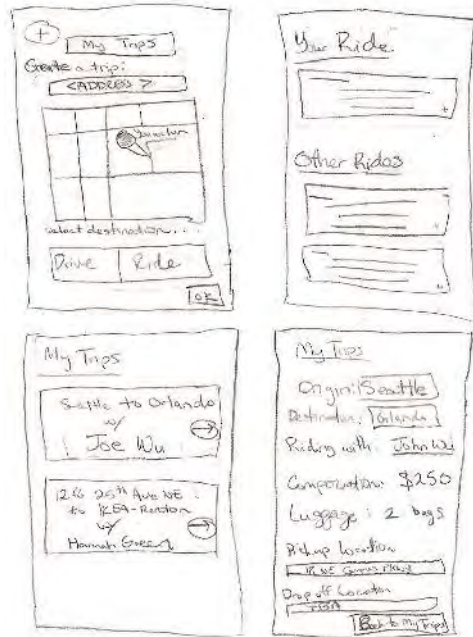 +
My Trips
Create a trip:
<ADDRESS>
You are here
select destination...
Drive Ride
OK
Your Ride
Other Rides
My Trips
Seattle to Orlando
w/
Joe Wu
25th Ave NE
to IKEA-Renton
w/
Hannah Green
My Trips
Origin: Seattle
Destination: Orlando
Riding with: John Wu
Compensation: $250
Luggage: 2 bags
Pickup Location
Drop off Location
Back to My Trips